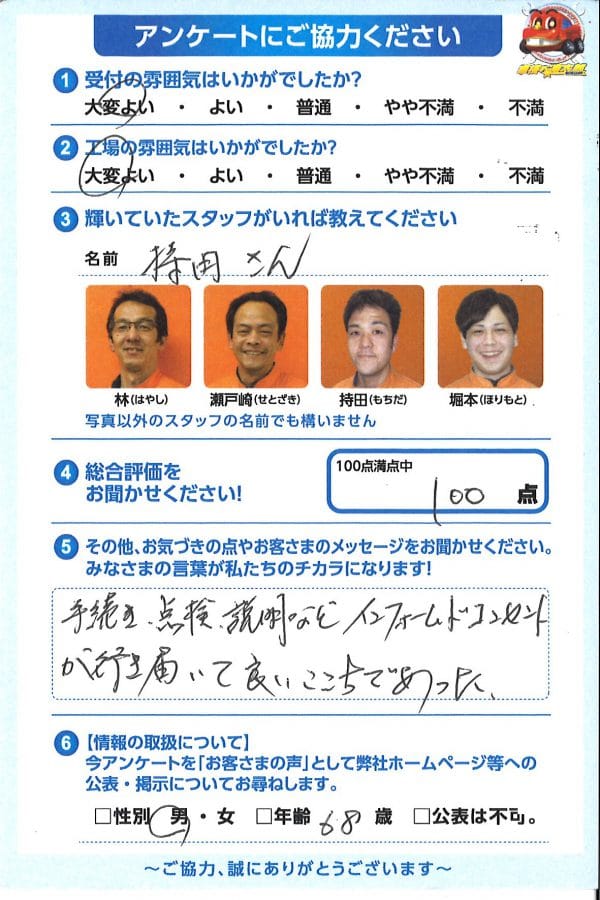 アンケートにご協力ください
1 受付の雰囲気はいかがでしたか?
大変よい ・ よい ・ 普通 ・ やや不満 ・ 不満
2 工場の雰囲気はいかがでしたか?
大変よい ・ よい ・ 普通 ・ やや不満 ・ 不満
3 輝いていたスタッフがいれば教えてください
名前 持田さん
林(はやし) 瀬戸崎(せとざき) 持田(もちだ) 堀本(ほりもと)
写真以外のスタッフの名前でも構いません
4 総合評価を
お聞かせください!
100点満点中
100 点
5 その他、お気づきの点やお客さまのメッセージをお聞かせください。
みなさまの言葉が私たちのチカラになります!
手続き、点検、説明など インフォームドコンセント
が行き届いて良いここちであった、
6 【情報の取扱について】
今アンケートを「お客さまの声」として弊社ホームページ等への
公表・掲示についてお尋ねします。
□性別 男・女 □年齢 68 歳 □公表は不可。
〜ご協力、誠にありがとうございます〜